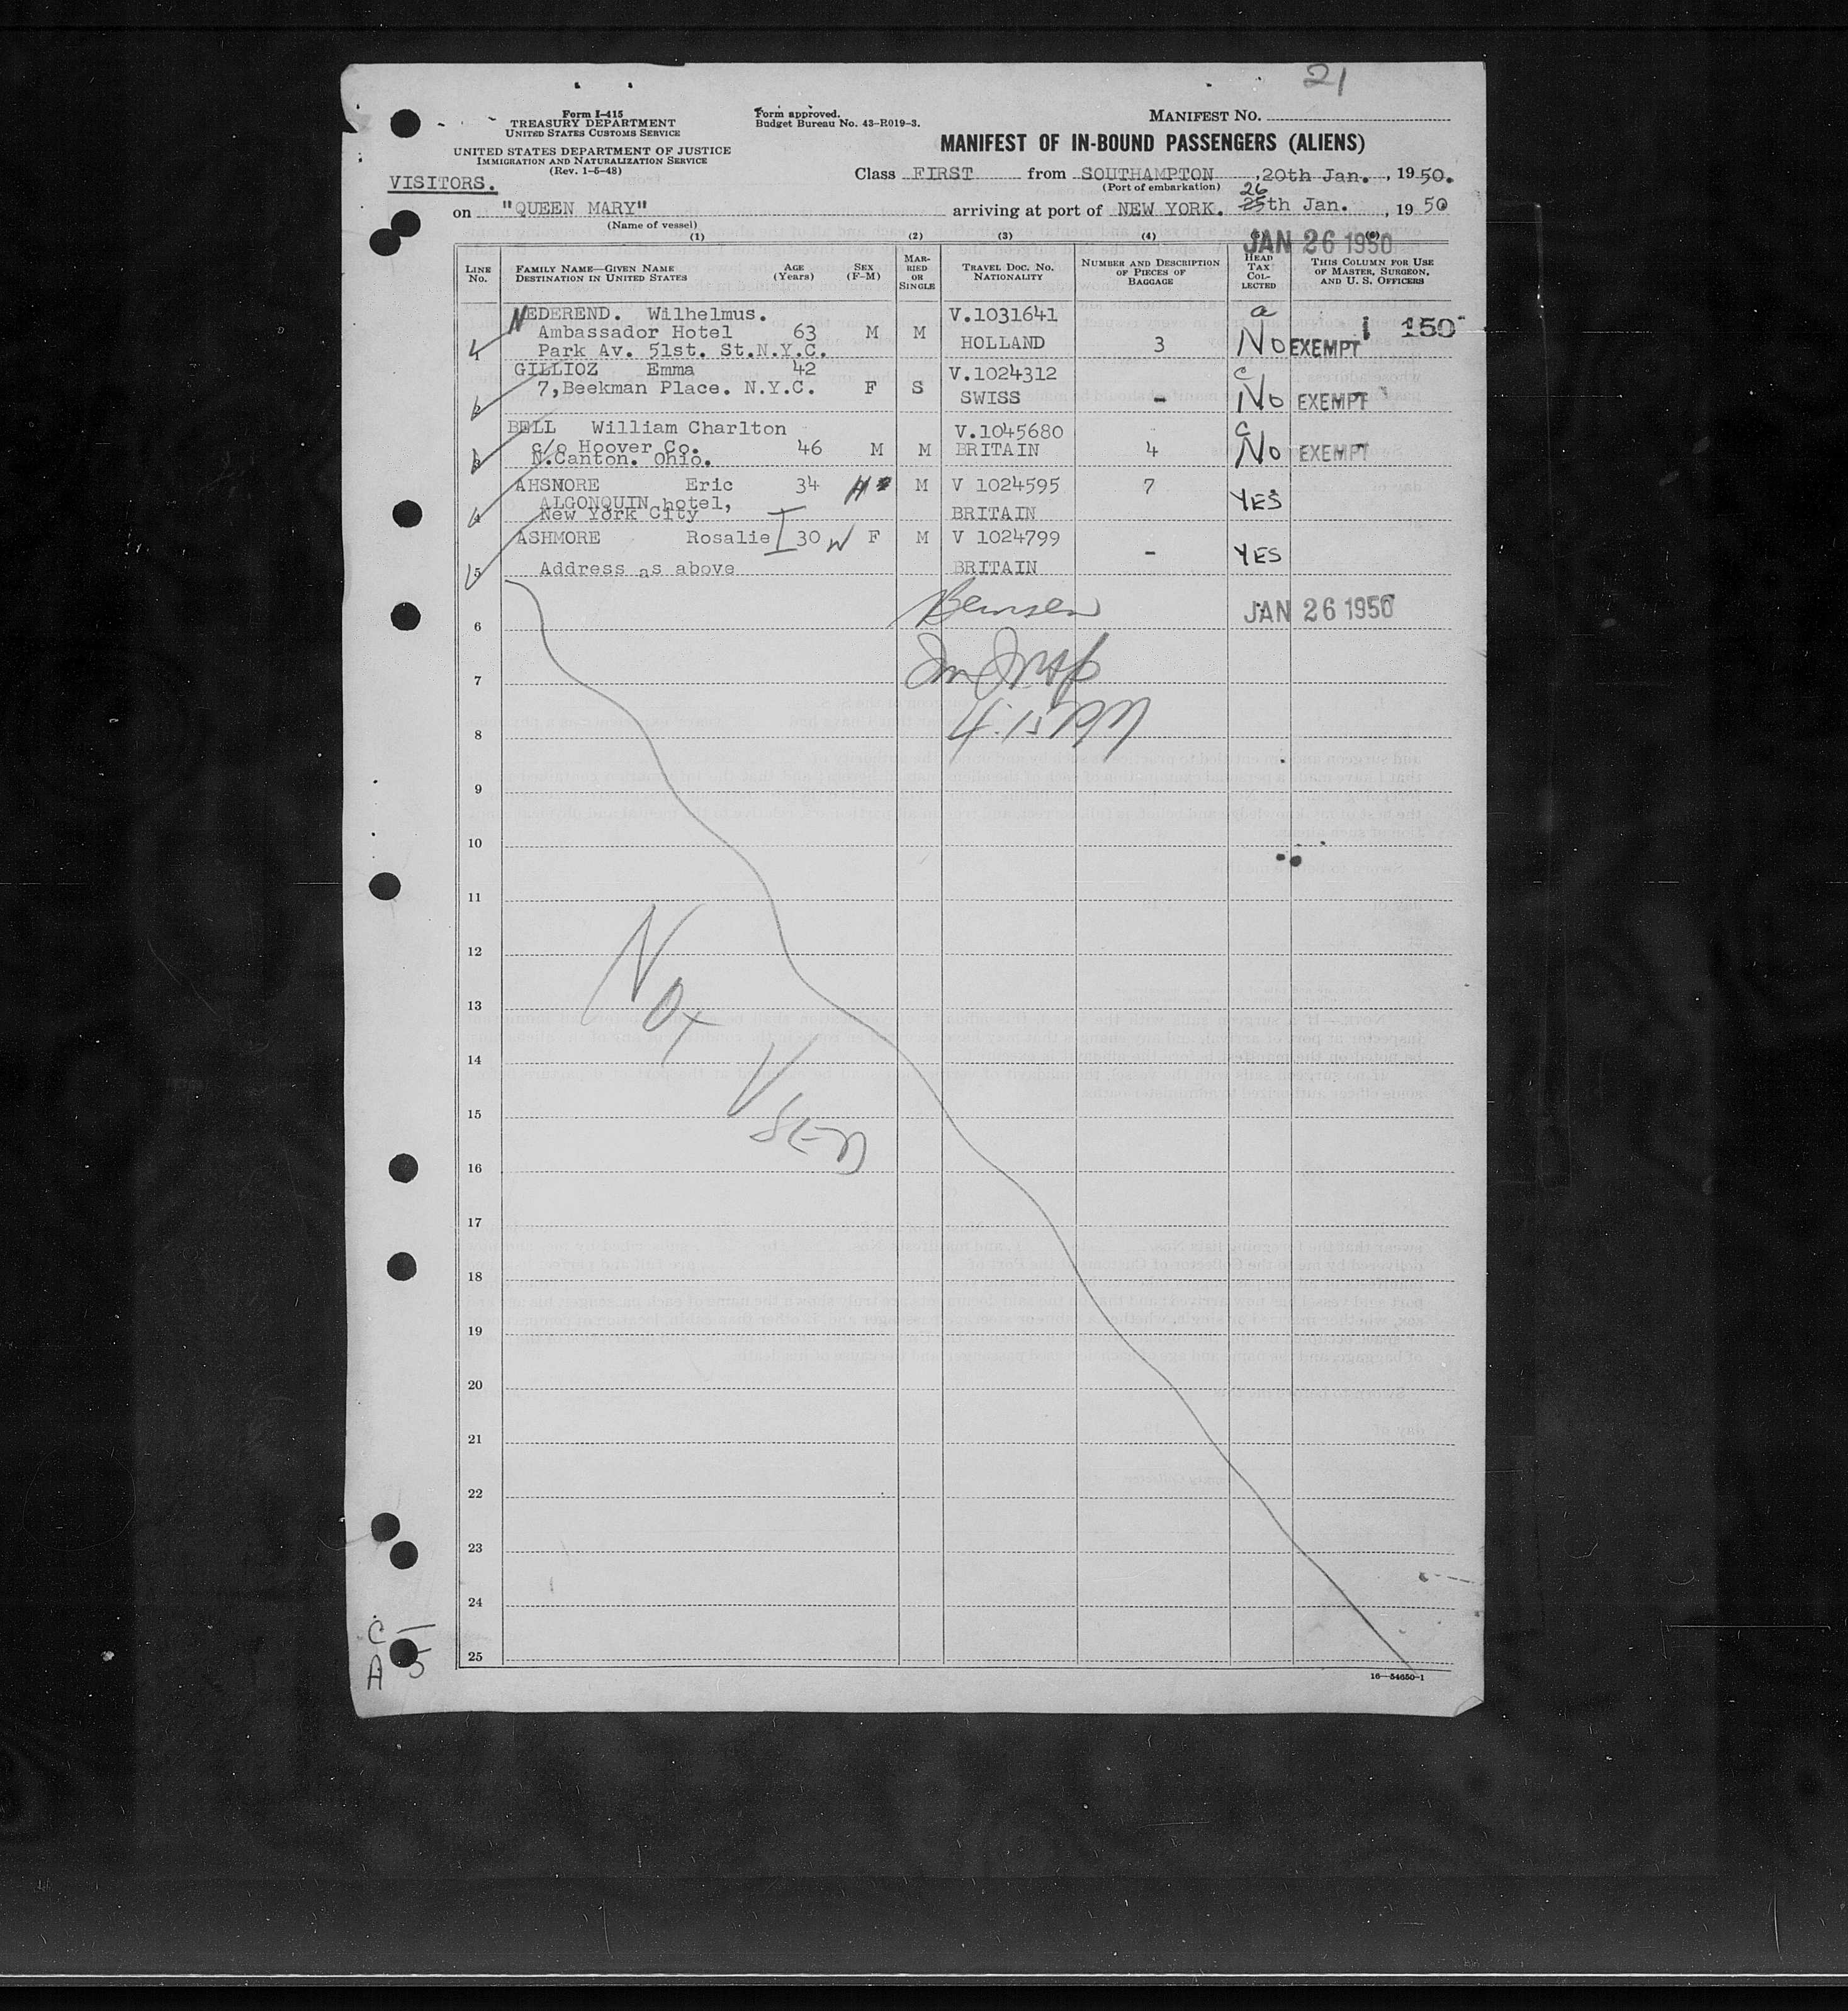 21
Form I-415
TREASURY DEPARTMENT
UNITED STATES CUSTOMS SERVICE
Form approved.
Budget Bureau No. 43-R019-3.
MANIFEST NO.
UNITED STATES DEPARTMENT OF JUSTICE
IMMIGRATION AND NATURALIZATION SERVICE
(Rev. 1-5-48)
MANIFEST OF IN-BOUND PASSENGERS (ALIENS)
VISITORS.
Class FIRST from SOUTHAMPTON , 20th Jan. , 1950.
(Port of embarkation)
on "QUEEN MARY" arriving at port of NEW YORK. 26 25th Jan. , 1950
(Name of vessel)
JAN 26 1950
(1) (2) (3) (4) (5) (6)
LINE No. FAMILY NAME—GIVEN NAME DESTINATION IN UNITED STATES AGE (Years) SEX (F-M) MARRIED OR SINGLE TRAVEL DOC. NO. NATIONALITY NUMBER AND DESCRIPTION OF PIECES OF BAGGAGE HEAD TAX COLLECTED THIS COLUMN FOR USE OF MASTER, SURGEON, AND U. S. OFFICERS
NEDEREND. Wilhelmus. V.1031641 a
Ambassador Hotel 63 M M 150
1 Park Av. 51st. St.N.Y.C. HOLLAND 3 No EXEMPT
GILLIOZ Emma 42 V.1024312 c
7,Beekman Place. N.Y.C. F S
2 SWISS - No EXEMPT
BELL William Charlton V.1045680 c
c/o Hoover Co. 46 M M BRITAIN 4 No EXEMPT
3 N.Canton. Ohio.
AHSNORE Eric 34 H M V 1024595 7
ALGONQUIN hotel, YES
4 New York City BRITAIN
ASHMORE Rosalie 30 W F M V 1024799 - YES
5 Address as above BRITAIN
JAN 26 1950
6
7
8
9
10
11
12
13
14
15
16
17
18
19
20
21
22
23
24
25
NOT USED
C —
A 5
16—54650-1